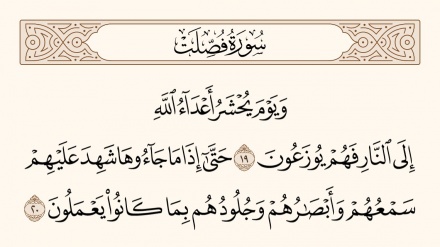 سُورَةُ فُصِّلَتْ
وَيَوْمَ يُحْشَرُ أَعْدَاءُ ٱللَّهِ
إِلَى ٱلنَّارِ فَهُمْ يُوزَعُونَ ١٩ حَتَّىٰ إِذَا مَا جَاءُوهَا شَهِدَ عَلَيْهِمْ
سَمْعُهُمْ وَأَبْصَٰرُهُمْ وَجُلُودُهُم بِمَا كَانُوا۟ يَعْمَلُونَ ٢٠